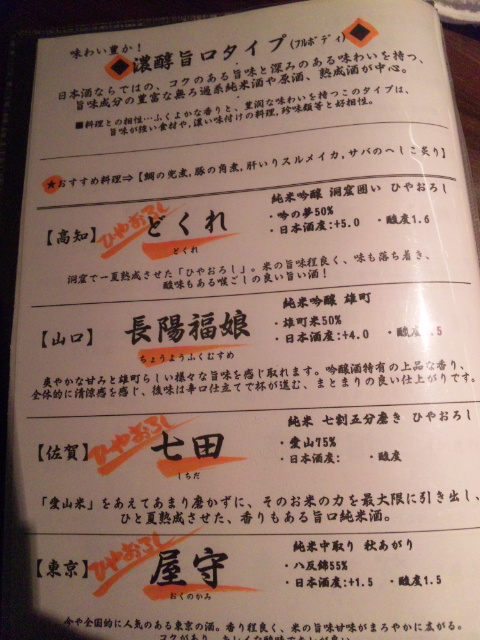 味わい豊か！
濃醇旨口タイプ(フルボディ)
日本酒ならではの、コクのある旨味と深みのある味わいを持つ、
旨味成分の豊富な無ろ過系純米酒や原酒、熟成酒が中心。
■料理との相性…ふくよかな香りと、豊潤な味わいを持つこのタイプは、
旨味が強い食材や、濃い味付けの料理、珍味類等と好相性。
★おすすめ料理⇒【鯛の兜煮,豚の角煮,肝いりスルメイカ,サバのへしこ炙り】
純米吟醸 洞窟囲い ひやおろし
【高知】
ひやおろし
どくれ
どくれ
・吟の夢50%
・日本酒度:+5.0 ・酸度1.6
洞窟で一夏熟成させた「ひやおろし」。米の旨味程良く、味も落ち着き、
酸味もある喉ごしの良い旨い酒！
純米吟醸 雄町
【山口】
長陽福娘
ちょうようふくむすめ
・雄町米50%
・日本酒度:+4.0 ・酸度 .5
爽やかな甘みと雄町らしい様々な旨味を感じ取れます。吟醸酒特有の上品な香り、
全体的に清涼感を感じ、後味は辛口仕立てで杯が進む、まとまりの良い仕上がりです。
純米 七割五分磨き ひやおろし
【佐賀】
ひやおろし
七田
しちだ
・愛山75%
・日本酒度: ・酸度
「愛山米」をあえてあまり磨かずに、そのお米の力を最大限に引き出し、
ひと夏熟成させた、香りもある旨口純米酒。
純米中取り 秋あがり
【東京】
ひやおろし
屋守
おくのかみ
・八反錦55%
・日本酒度:+1.5 ・酸度1.5
今や全国的に人気のある東京の酒。香り程良く、米の旨味甘味がまろやかに広がる。